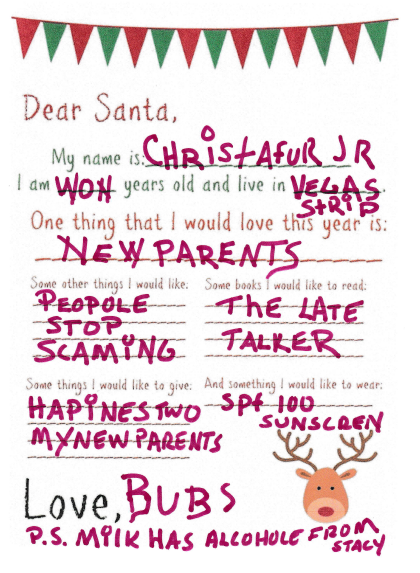 Dear Santa,
My name is: CHRiStAfUR JR
I am WON years old and live in VEGAS StRiP.
One thing that I would love this year is:
NEW PARENTS
Some other things I would like:
PEOPOLE
STOP
SCAMiNG
Some books I would like to read:
THE LATE
TALKER
Some things I would like to give:
HAPiNES TWO
MY NEW PARENTS
And something I would like to wear:
SPf 100
SUNSCREN
Love, BUBS
P.S. MilK HAS ALCOHOLE FROM
STACY